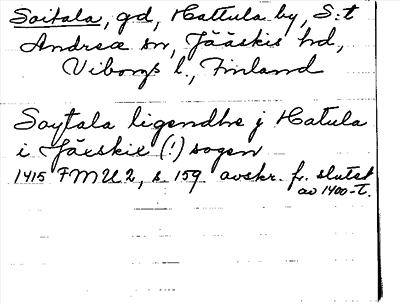 Soitala, gd, Hattula by, S:t
Andreæ sn, Jääskis hd,
Viborgs l., Finland
Soytala ligendhe j Hatula
i Jäeskie (!) sogen
1415 FMU 2, s. 159 avskr. fr. slutet
av 1400-t.